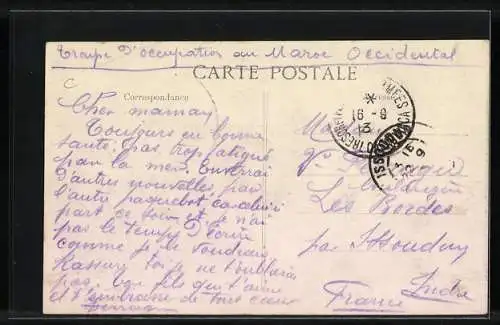 Troupe d'occupation au Maroc Occidental
CARTE POSTALE
Correspondance
Cher maman
Toujours en bonne
santé, pas trop fatigué
par la mer. Enverrai
d'autres nouvelles par
l'autre paquebot car celui
part ce soir et je n'ai
pas le temps d'écrire
comme je le voudrais
Rassure toi je ne t'oublierai
pas. Ton fils qui t'aime
et t'embrasse de tout cœur
TRESOR ARMEES
CASABLANCA
16-9
13
Vve
Les Bordes
par Issoudun
Indre
France
ISSOUDUN